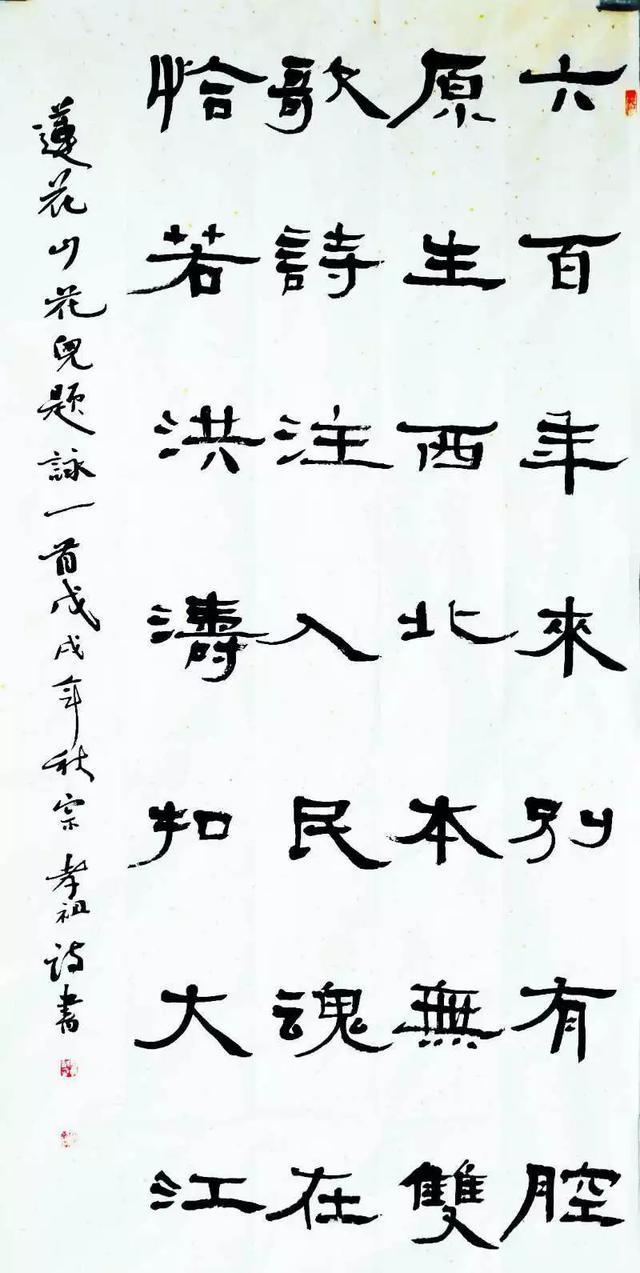 六百年來別有腔
原生西北本無雙
歌詩注入民魂在
恰若洪濤扣大江
蓮花山花兒題詠一首戊戌年秋宗孝祖詩書